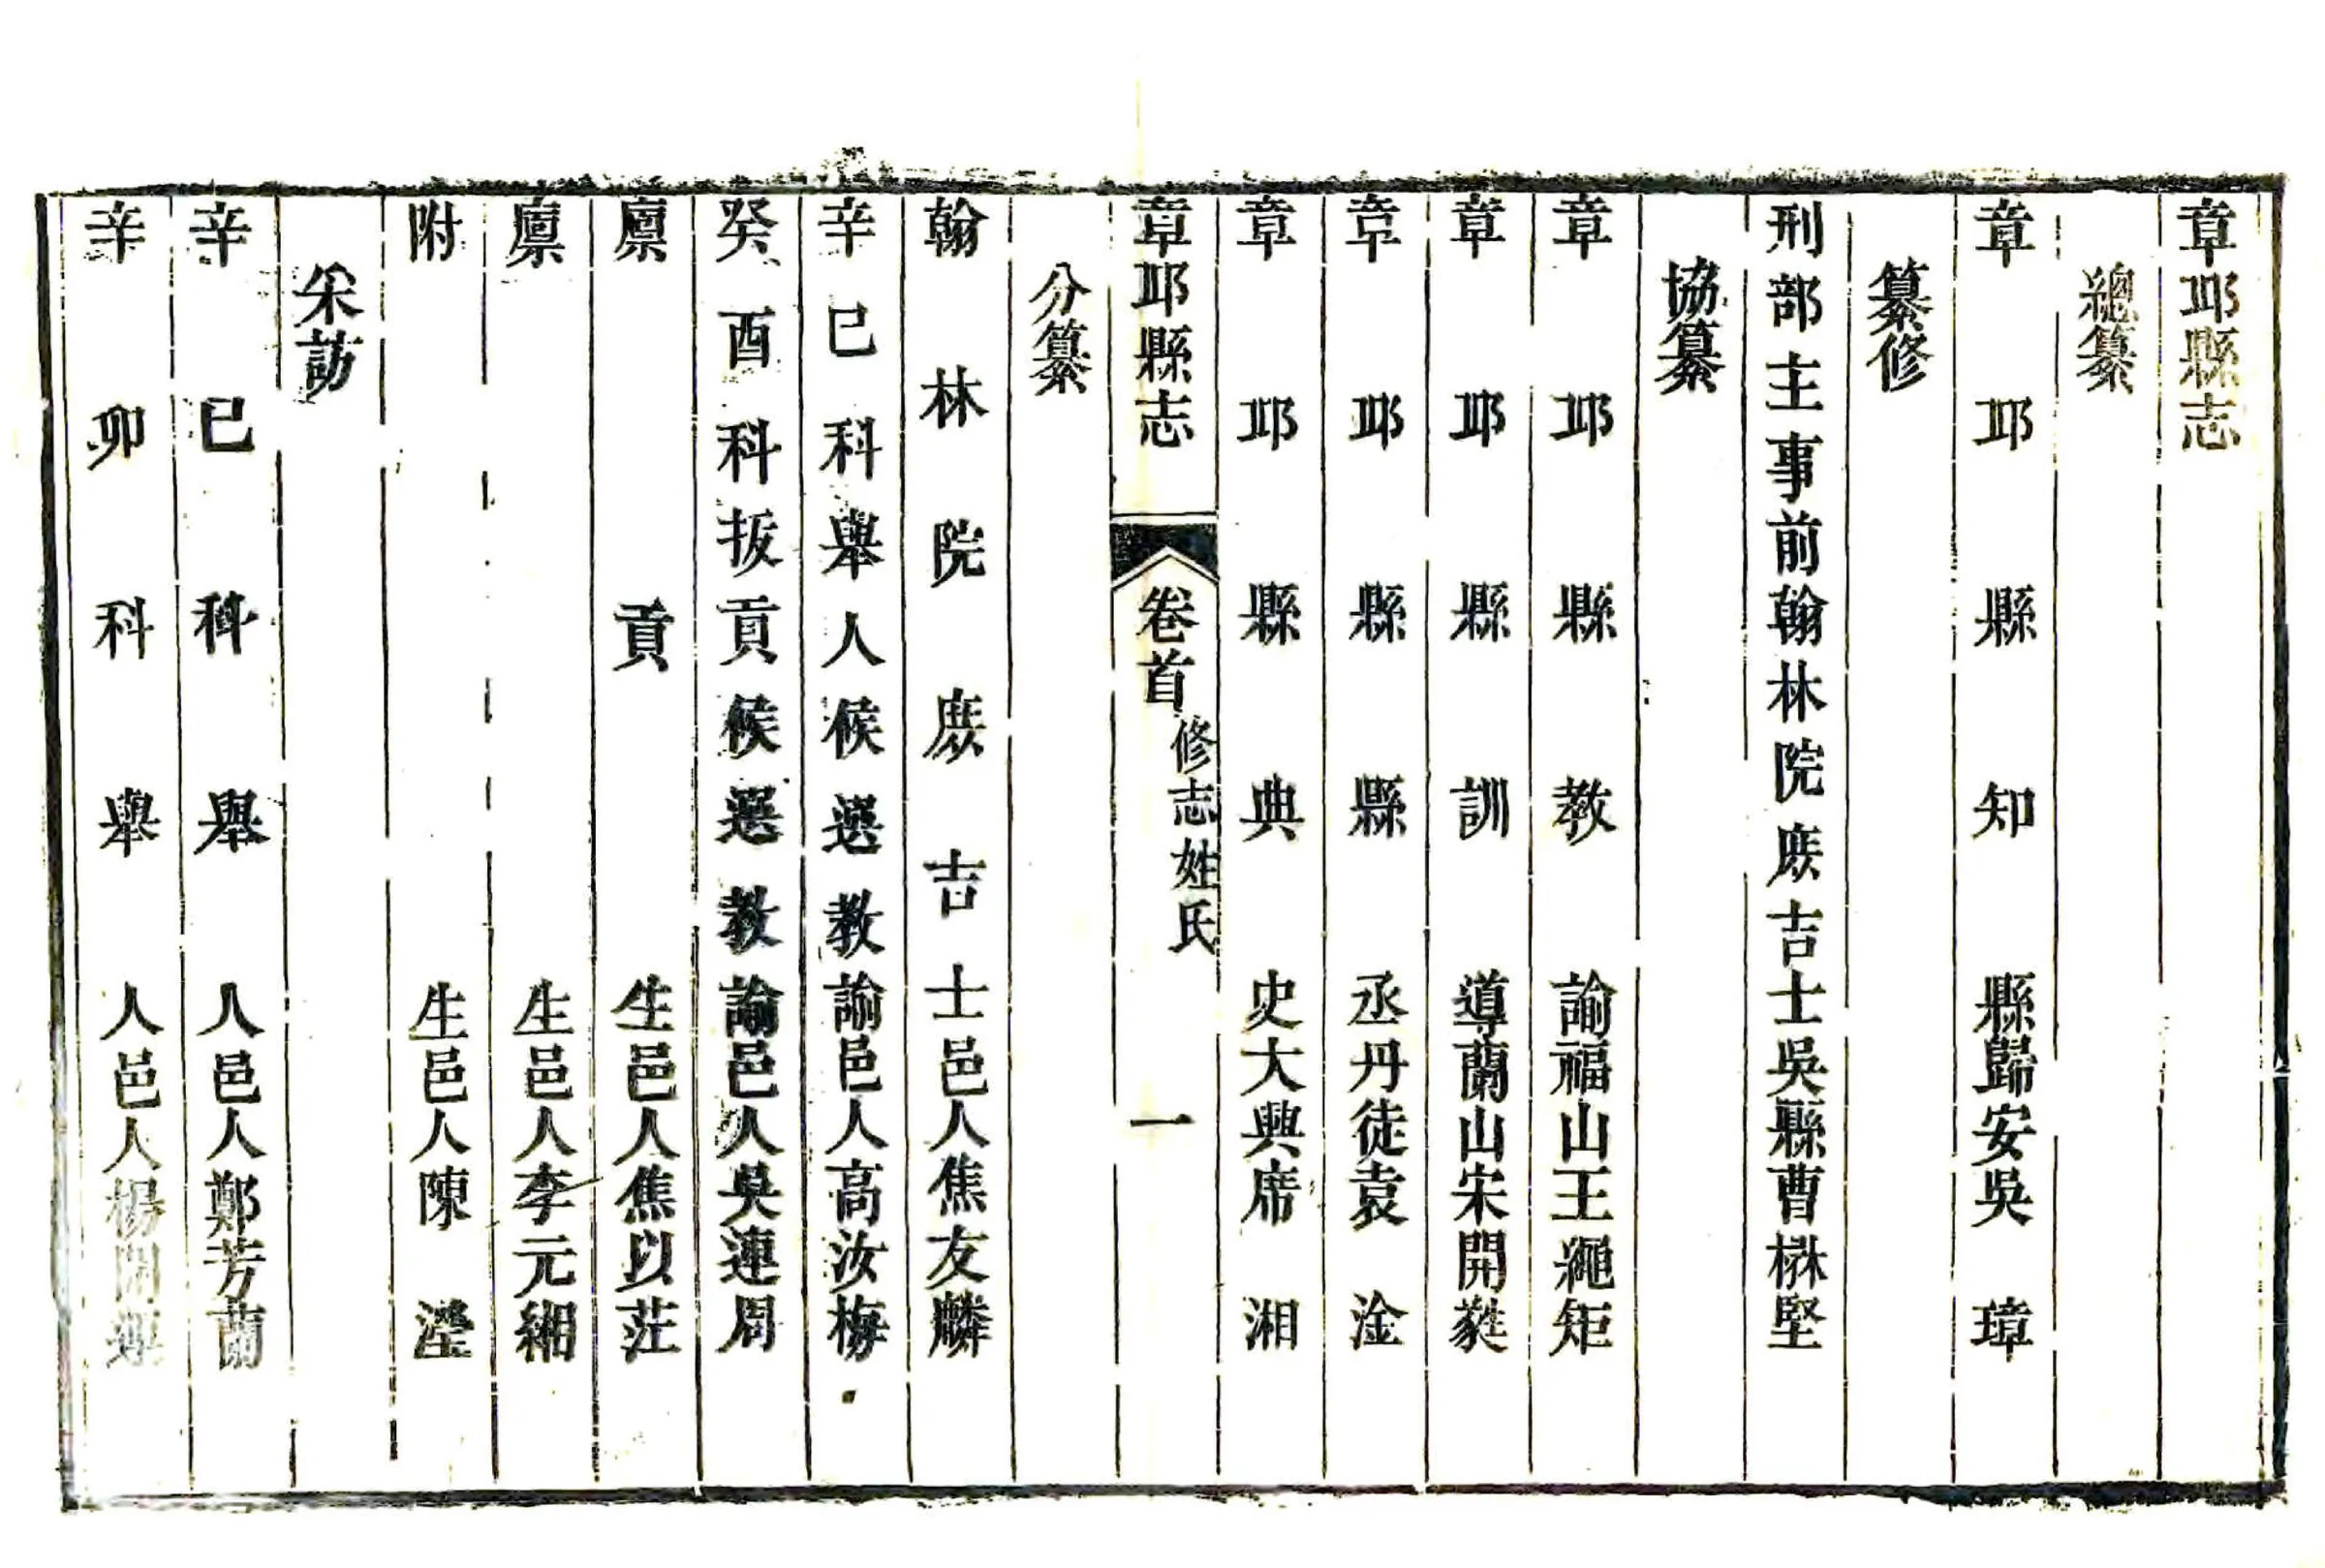 章邱縣志
總纂
章邱縣知縣歸安吳璋
纂修
刑部主事前翰林院庶吉士吳縣曹楙堅
協纂
章邱縣教諭福山王繩矩
章邱縣訓導蘭山宋開蕤
章邱縣縣丞丹徒袁淦
章邱縣典史大興席湘
章邱縣志 卷首 修志姓氏 一
分纂
翰林院庶吉士邑人焦友麟
辛巳科舉人候選教諭邑人高汝梅
癸酉科拔貢候選教諭邑人吳連周
廩貢生邑人焦以茳
廩生邑人李元緗
附生邑人陳瀅
采訪
辛巳科舉人邑人鄭芳蘭
辛卯科舉人邑人楊開